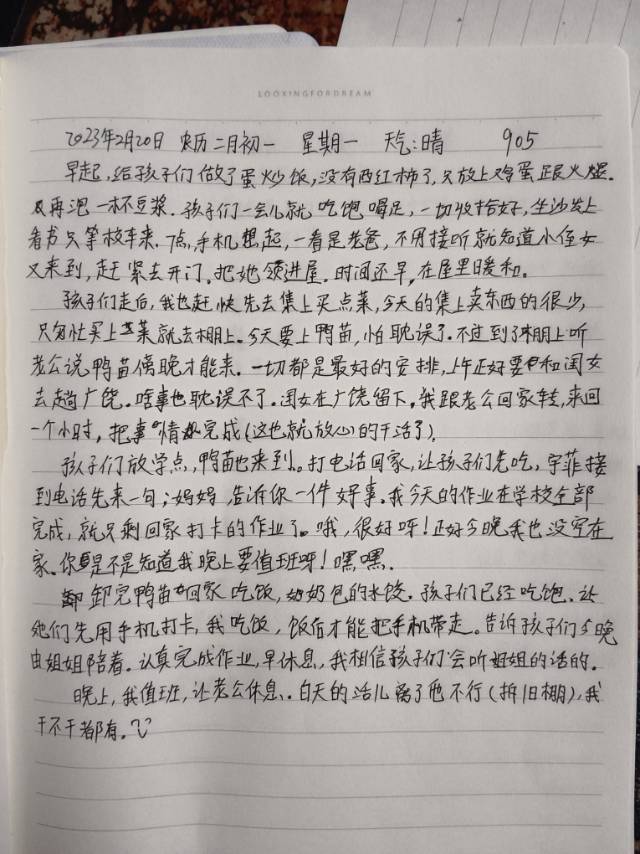 LOOKINGFORDREAM
2023年2月20日 农历二月初一 星期一 天气:晴 905
早起,给孩子们做了蛋炒饭,没有西红柿了,只放上鸡蛋跟火腿.
又再泡一杯豆浆.孩子们一会儿就吃饱喝足,一切收拾好,坐沙发上
看书只等校车来.7点,手机想起,一看是老爸,不用接听就知道小侄女
又来到,赶紧去开门.把她领进屋.时间还早,在屋里暖和.
孩子们走后,我也赶快先去集上买点菜,今天的集上卖东西的很少,
只匆忙买上菜就去棚上.今天要上鸭苗,怕耽误了.不过到了棚上听
老公说鸭苗傍晚才能来.一切都是最好的安排,上午正好要和闺女
去趟广饶.啥事也耽误不了.闺女在广饶留下.我跟老公回家转,来回
一个小时,把事情完成(这也就放心的干活了).
孩子们放学点,鸭苗也来到.打电话回家,让孩子们先吃,宇菲接
到电话先来一句;妈妈,告诉你一件好事.我今天的作业在学校全部
完成,就只剩回家打卡的作业了.哦,很好呀!正好今晚我也没空在
家.你是不是知道我晚上要值班呀!嘿嘿.
卸完鸭苗回家吃饭,奶奶包的水饺.孩子们已经吃饱.让
她们先用手机打卡,我吃饭,饭后才能把手机带走.告诉孩子们今晚
由姐姐陪着.认真完成作业,早休息,我相信孩子们会听姐姐的话的.
晚上,我值班,让老公休息.白天的活儿离了他不行(拆旧棚),我
干不干都有.